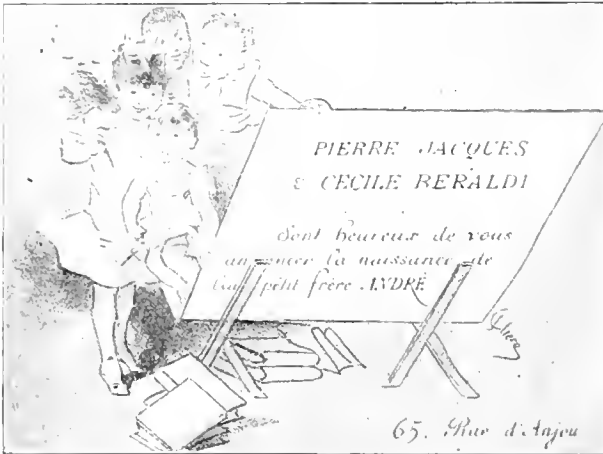 PIERRE JACQUES
& CECILE BERALDI
Sont heureux de vous
annoncer la naissance de
leur petit frère ANDRÉ
65, Rue d'Anjou